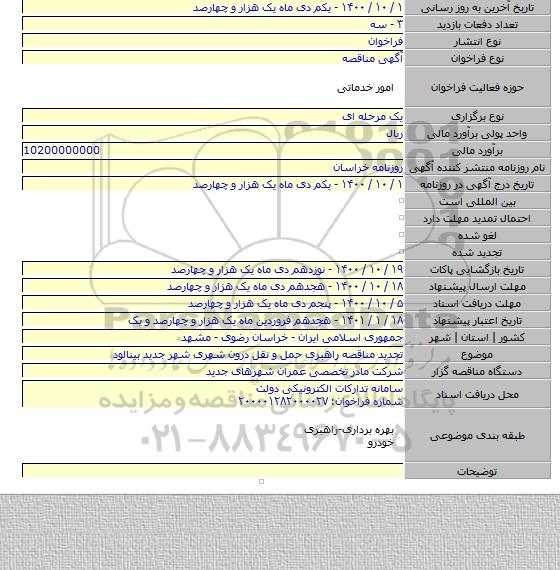 تاریخ آخرین به روز رسانی ۱ / ۱۰ / ۱۴۰۰ - یکم دی ماه یک هزار و چهارصد
تعداد دفعات بازدید ۳ - سه
نوع انتشار فراخوان
نوع فراخوان آگهی مناقصه
حوزه فعالیت فراخوان امور خدماتی
نوع برگزاری یک مرحله ای
واحد پولی برآورد مالی ریال
برآورد مالی 10200000000
نام روزنامه منتشر کننده آگهی روزنامه خراسان
تاریخ درج آگهی در روزنامه ۱ / ۱۰ / ۱۴۰۰ - یکم دی ماه یک هزار و چهارصد
بین المللی است
احتمال تمدید مهلت دارد
لغو شده
تجدید شده
تاریخ بازگشایی پاکات ۱۹ / ۱۰ / ۱۴۰۰ - نوزدهم دی ماه یک هزار و چهارصد
مهلت ارسال پیشنهاد ۱۸ / ۱۰ / ۱۴۰۰ - هجدهم دی ماه یک هزار و چهارصد
مهلت دریافت اسناد ۵ / ۱۰ / ۱۴۰۰ - پنجم دی ماه یک هزار و چهارصد
تاریخ اعتبار پیشنهاد ۱۸ / ۱ / ۱۴۰۱ - هجدهم فروردین ماه یک هزار و چهارصد و یک
کشور | استان | شهر جمهوری اسلامی ایران - خراسان رضوی - مشهد
موضوع تجدید مناقصه راهبری حمل و نقل درون شهری شهر جدید بینالود
دستگاه مناقصه گزار شرکت مادر تخصصی عمران شهرهای جدید
محل دریافت اسناد سامانه تدارکات الکترونیکی دولت
شماره فراخوان: ۲۰۰۰۰۰۱۲۸۲۰۰۰۰۲۷
طبقه بندی موضوعی بهره برداری-راهبری
خودرو
توضیحات
۰۲۱-۸۸۳۴۹۶۷۰-۵